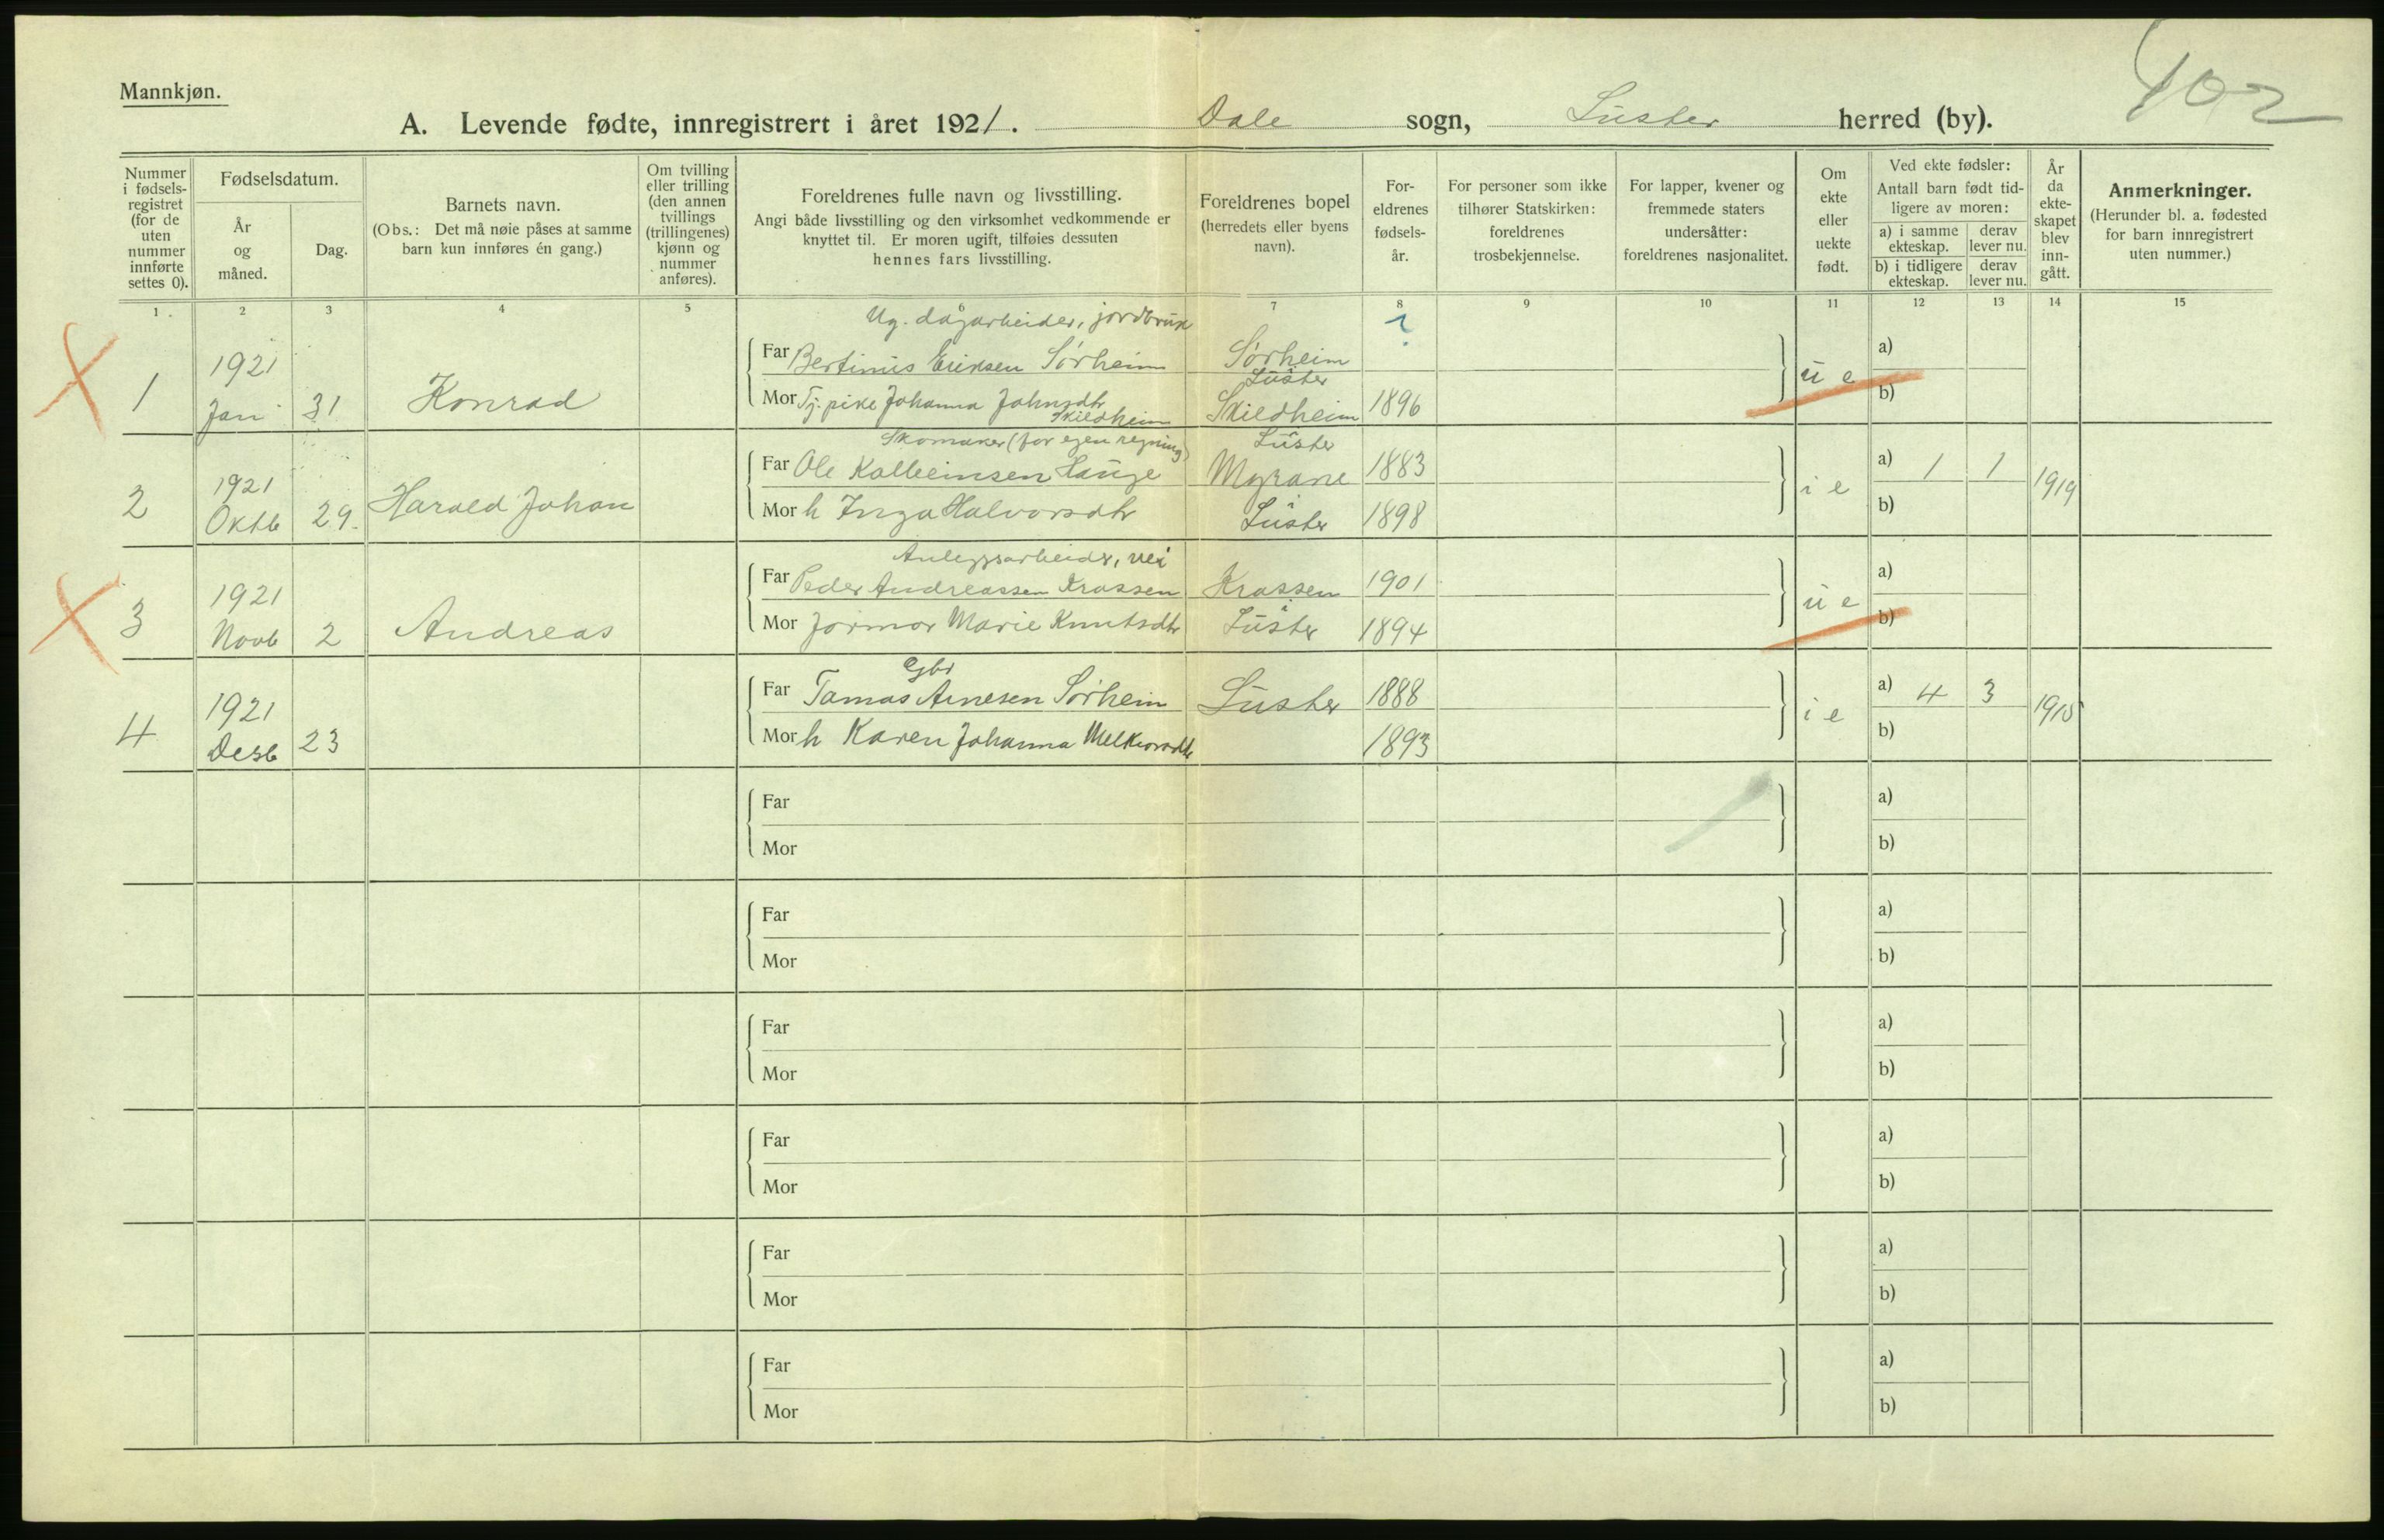 402
Mannkjøn.
A. Levende fødte, innregistrert i året 1921. Dale sogn, Luster herred (by).
Nummer i fødsels-registret (for de uten nummer innførte settes 0).
Fødselsdatum.
År og måned.
Dag.
Barnets navn.
(Obs.: Det må nøie påses at samme barn kun innføres én gang.)
Om tvilling eller trilling (den annen tvillings (trillingenes) kjønn og nummer anføres).
Foreldrenes fulle navn og livsstilling.
Angi både livsstilling og den virksomhet vedkommende er knyttet til. Er moren ugift, tilføies dessuten hennes fars livsstilling.
Foreldrenes bopel (herredets eller byens navn).
For-eldrenes fødsels-år.
For personer som ikke tilhører Statskirken: foreldrenes trosbekjennelse.
For lapper, kvener og fremmede staters undersåtter: foreldrenes nasjonalitet.
Om ekte eller uekte født.
Ved ekte fødsler:
Antall barn født tid-ligere av moren:
a) i samme ekteskap.
derav lever nu.
b) i tidligere ekteskap.
derav lever nu.
År da ekte-skapet blev inn-gått.
Anmerkninger.
(Herunder bl. a. fødested for barn innregistrert uten nummer.)
1 2 3 4 5 6 7 8 9 10 11 12 13 14 15
Ug. dagarbeider, jordbruk ?
1 1921 Jan 31 Konrad
Far Bertinius Eriksen Sørheim Sørheim Luster
Mor Tj. pike Johanna Johnsdtr Skildheim Skieldheim Luster 1896
u e a) b)
Skomaker (for egen regning)
2 1921 Oktb 29. Harald Johan
Far Ole Kolbeinsen Hauge Myrane 1883
Mor h Inga Halvorsdtr Luster 1898
i e a) 1 1 b) 1919
Anleggsarbeider, vei
3 1921 Novb 2 Andreas
Far Peder Andreassen Krossen Krossen 1901
Mor Jormor Marie Knutsdtr Luster 1894
u e a) b)
Gbr
4 1921 Desb 23
Far Tomas Arnesen Sørheim Luster 1888
Mor h Karen Johanna Melkiorsdtr 1893
i e a) 4 3 b) 1915
Far a)
Mor b)
Far a)
Mor b)
Far a)
Mor b)
Far a)
Mor b)
Far a)
Mor b)
Far a)
Mor b)